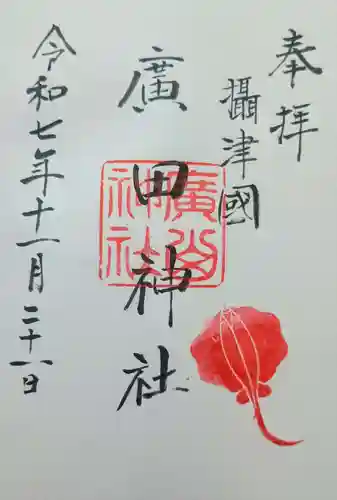 奉拝
攝津國
廣田神社
廣田神社
令和七年十一月二十八日